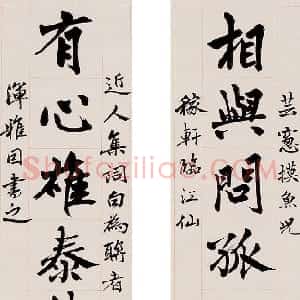 芸窻摸魚兒
相與問孤
稼軒臨江仙
近人集詞句為聯者
有心雄泰
渾雅因書之